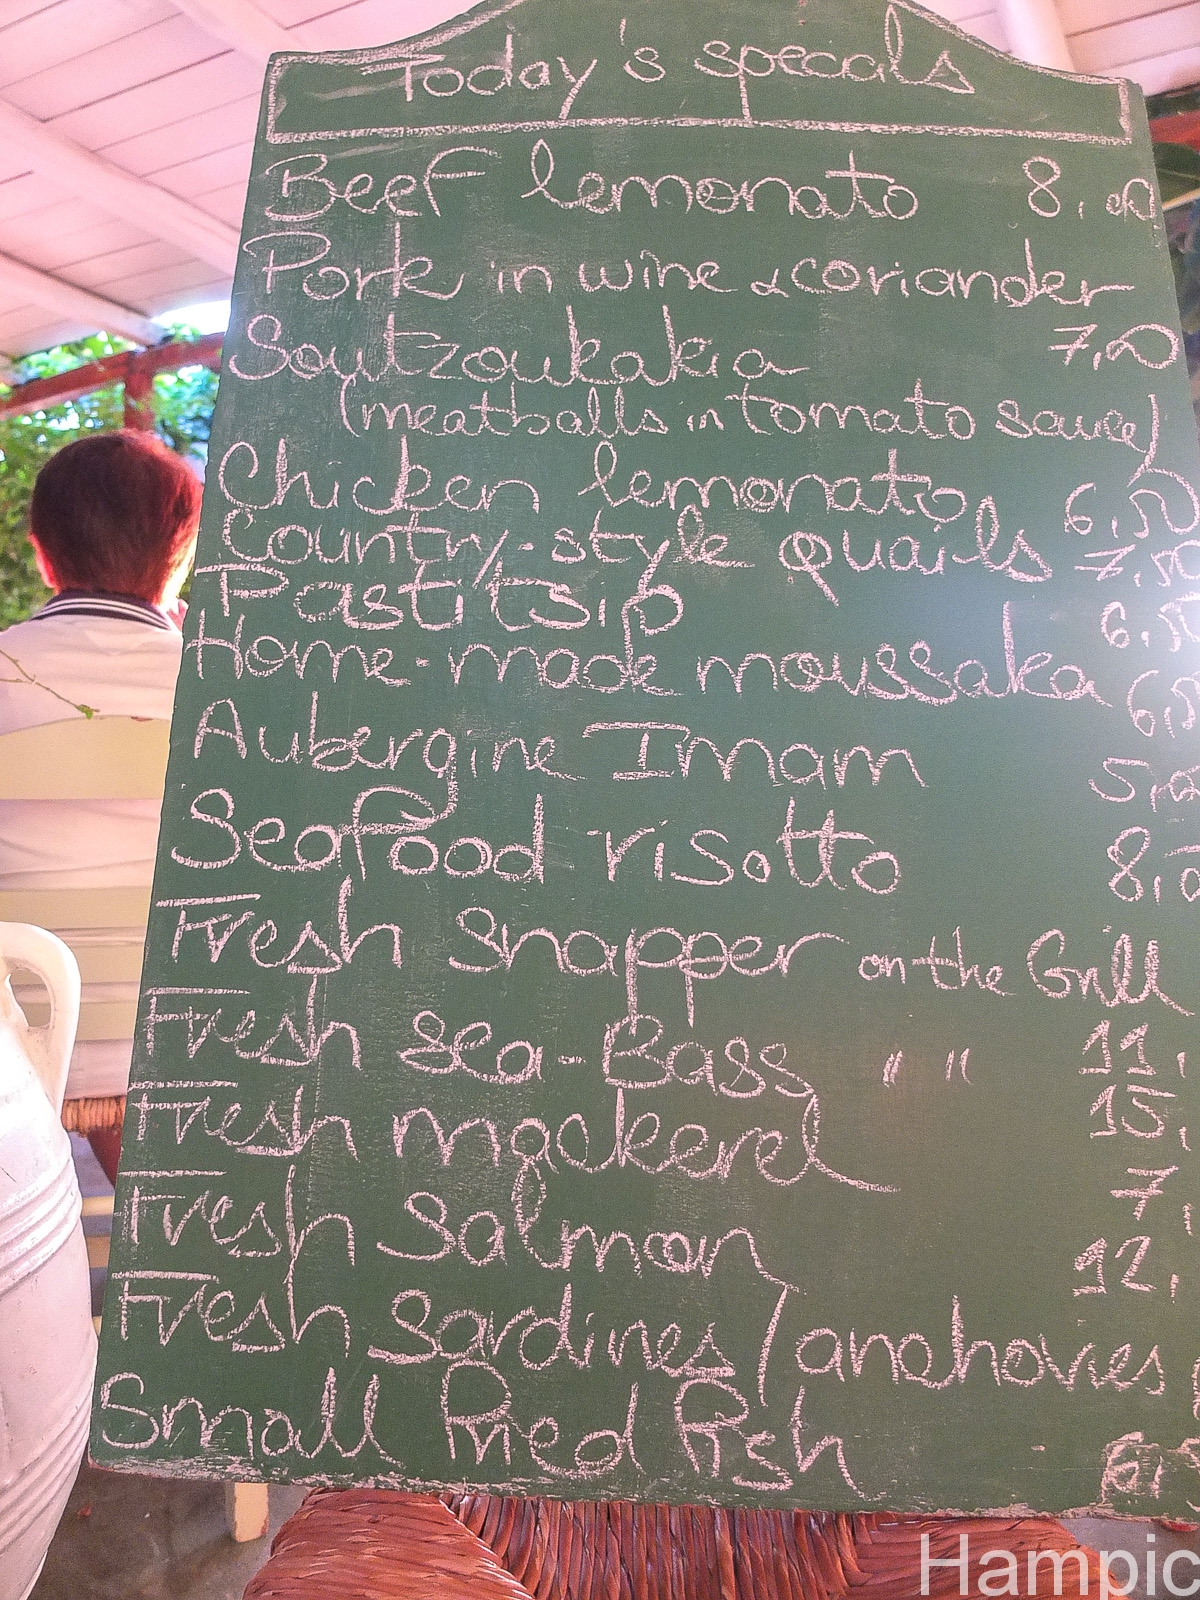 Today's specals
Beef lemonato 8,00
Pork in wine & coriander
Soutzoukakia 7,50
(meatballs in tomato sauce)
Chicken lemonato 6,50
Country-style quails 7,50
Pastitsio 6,50
Home-made moussaka 6,50
Aubergine Imam 5,
Seafood risotto 8,0
Fresh snapper on the Grill
Fresh sea-Bass " " 11,
Fresh mackerel 15,
Fresh Salmon 7,
12,
Fresh sardines/anchovies
Small fried fish 6,
Hampic